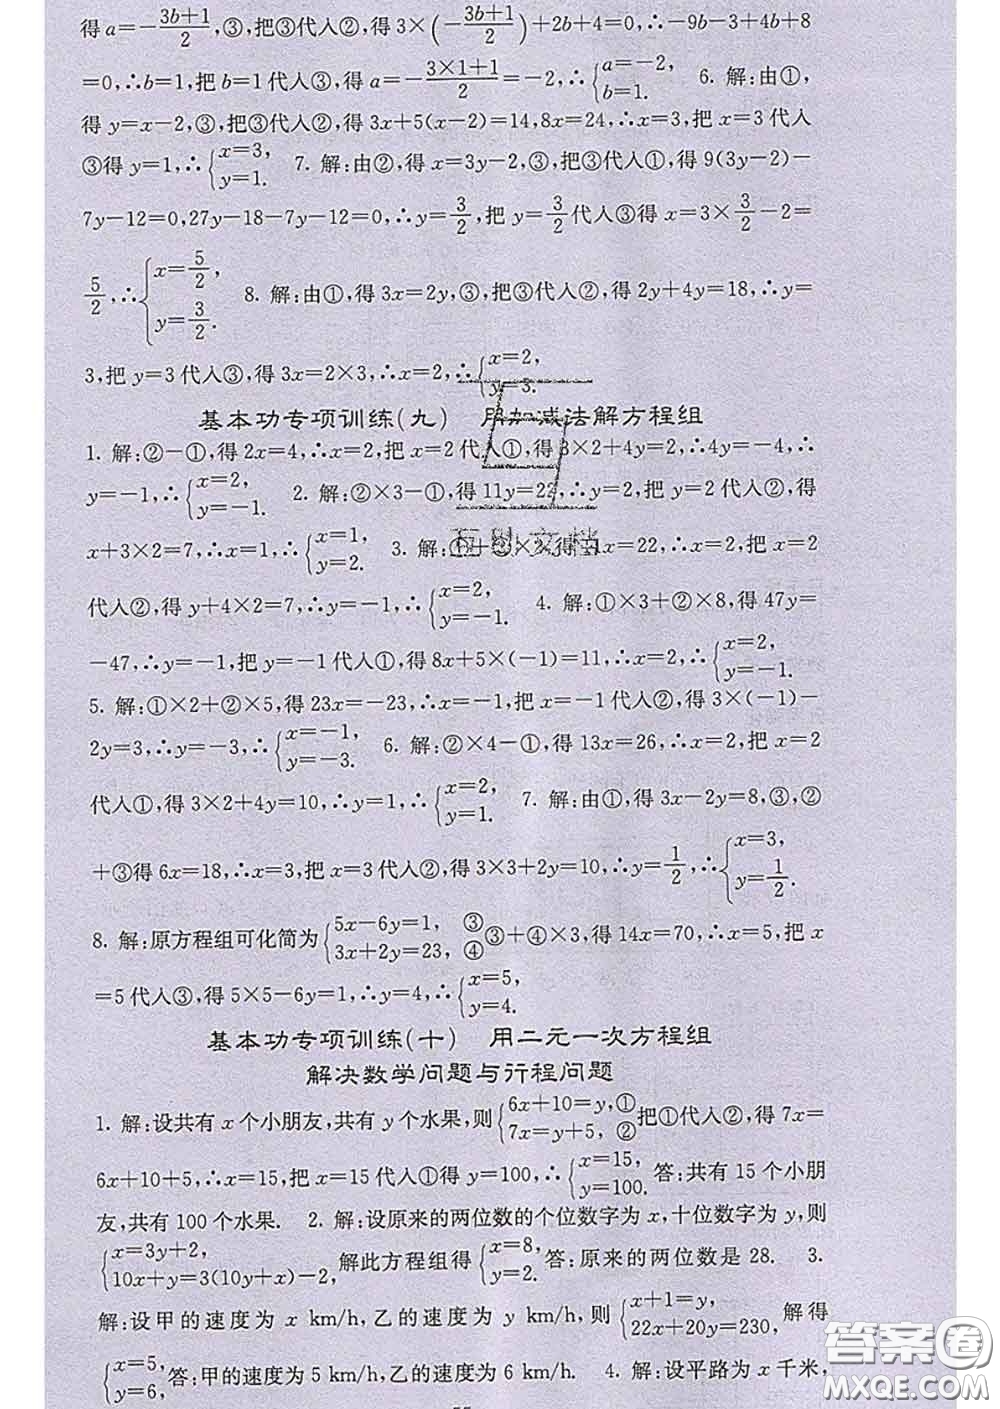 得a=-\frac{3b+1}{2},③,把③代入②,得3×(-\frac{3b+1}{2})+2b+4=0,∴-9b-3+4b+8
=0,∴b=1,把b=1代入③,得a=-\frac{3×1+1}{2}=-2,∴{a=-2, b=1. 6. 解:由①,
得y=x-2,③,把③代入②,得3x+5(x-2)=14,8x=24,∴x=3,把x=3代入
③得y=1,∴{x=3, y=1. 7. 解:由②,得x=3y-2,③,把③代入①,得9(3y-2)-
7y-12=0,27y-18-7y-12=0,∴y=\frac{3}{2},把y=\frac{3}{2}代入③得x=3×\frac{3}{2}-2=
\frac{5}{2},∴{x=\frac{5}{2}, y=\frac{3}{2}. 8. 解:由①,得3x=2y,③,把③代入②,得2y+4y=18,∴y=
3,把y=3代入③,得3x=2×3,∴x=2,∴{x=2, y=3.
基本功专项训练(九) 用加减法解方程组
1. 解:②-①,得2x=4,∴x=2,把x=2代入①,得3×2+4y=2,∴4y=-4,∴
y=-1,∴{x=2, y=-1. 2. 解:②×3-①,得11y=22,∴y=2,把y=2代入②,得
x+3×2=7,∴x=1,∴{x=1, y=2. 3. 解:①+②× 得 x=22,∴x=2,把x=2
代入②,得y+4×2=7,∴y=-1,∴{x=2, y=-1. 4. 解:①×3+②×8,得47y=
-47,∴y=-1,把y=-1代入①,得8x+5×(-1)=11,∴x=2,∴{x=2, y=-1.
5. 解:①×2+②×5,得23x=-23,∴x=-1,把x=-1代入②,得3×(-1)-
2y=3,∴y=-3,∴{x=-1, y=-3. 6. 解:②×4-①,得13x=26,∴x=2,把x=2
代入①,得3×2+4y=10,∴y=1,∴{x=2, y=1. 7. 解:由①,得3x-2y=8,③,②
+③得6x=18,∴x=3,把x=3代入②,得3×3+2y=10,∴y=\frac{1}{2},∴{x=3, y=\frac{1}{2}.
8. 解:原方程组可化简为{5x-6y=1, ③ 3x+2y=23, ④ ③+④×3,得14x=70,∴x=5,把x
=5代入③,得5×5-6y=1,∴y=4,∴{x=5, y=4.
基本功专项训练(十) 用二元一次方程组
解决数学问题与行程问题
1. 解:设共有x个小朋友,共有y个水果,则{6x+10=y,① 7x=y+5, ② 把①代入②,得7x=
6x+10+5,∴x=15,把x=15代入①得y=100,∴{x=15, y=100. 答:共有15个小朋
友,共有100个水果. 2. 解:设原来的两位数的个位数字为x,十位数字为y,则
{x=3y+2, 10x+y=3(10y+x)-2, 解此方程组得{x=8, y=2. 答:原来的两位数是28. 3.
解:设甲的速度为x km/h,乙的速度为y km/h,则{x+1=y, 22x+20y=230, 解得
{x=5, y=6, 答:甲的速度为5 km/h,乙的速度为6 km/h. 4. 解:设平路为x千米,
答案圈
MXQE.COM